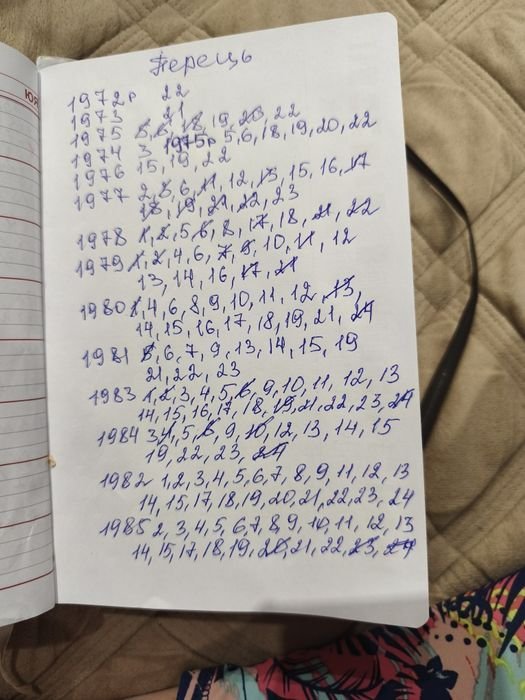 ЮЯ
Перець
1972р 22
1973 21
1975 5, 6, 18, 19, 20, 22
1974 3 1975р 5, 6, 18, 19, 20, 22
1976 15, 19, 22
1977 2, 5, 6, 11, 12, 13, 15, 16, 17
18, 19, 21, 22, 23
1978 1, 2, 5, 6, 8, 17, 18, 21, 22
1979 1, 2, 4, 6, 7, 8, 10, 11, 12
13, 14, 16, 17, 21
1980 1, 4, 6, 8, 9, 10, 11, 12, 13,
14, 15, 16, 17, 18, 19, 21, 24
1981 5, 6, 7, 9, 13, 14, 15, 19
21, 22, 23
1983 1, 2, 3, 4, 5, 6, 9, 10, 11, 12, 13
14, 15, 16, 17, 18, 19, 21, 22, 23, 24
1984 3, 4, 5, 6, 9, 10, 12, 13, 14, 15
19, 22, 23, 24
1982 1, 2, 3, 4, 5, 6, 7, 8, 9, 11, 12, 13
14, 15, 17, 18, 19, 20, 21, 22, 23, 24
1985 2, 3, 4, 5, 6, 7, 8, 9, 10, 11, 12, 13
14, 15, 17, 18, 19, 20, 21, 22, 23, 24